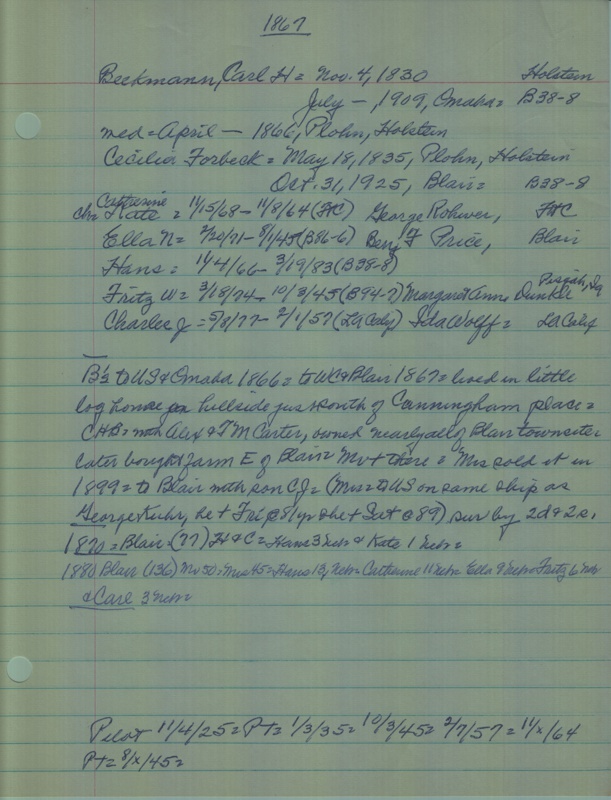 1867
Beckmann, Carl H = Nov. 4, 1830 Holstein
July — , 1909, Omaha = B38-8
med = April — 1866, Plohn, Holstein
Cecilia Forbeck = May 18, 1835, Plohn, Holstein
Oct. 31, 1925, Blair = B38-8
Catherine
ch = Kate = 11/5/68 - 11/8/64 (FtC) George Rohwer, FtC
Ella N = 2/20/71 - 8/1/45 (B86-6) Benj F Price, Blair
Hans = 11/4/66 - 3/19/83 (B38-8)
Pisgah, Ia
Fritz W = 3/18/74 - 10/3/45 (B94-7) Margaret Ann Dunkle
Charles J = 5/8/77 - 2/1/57 (LA Calif) Ida Wolff = LA Calif
B's to US & Omaha 1866 = to WC & Blair 1867 = lived in little
log house on hillside just south of Cunningham place =
CHB = with Alex & TM Carter, owned nearly all of Blair townsite
Later bought farm E of Blair = Mr + there = Mrs sold it in
1899 = to Blair with son CJ = (Mrs = to US on same ship as
George Kuhr, he + Fri @ 81 yr she + Sat @ 89) sur by 2d & 2s.
1870 = Blair (77) H & C = Hans 3 Neb & Kate 1 Neb =
1880 Blair (136) Mr 50 = Mrs 45 = Hans 13, Neb = Catherine 11 Neb Ella 9 Neb = Fritz 6 Neb
& Carl 3 Neb =
Pilot 11/4/25 = PT = 1/3/35 = 10/3/45 = 2/7/57 = 11/x/64
PT = 8/x/45 =